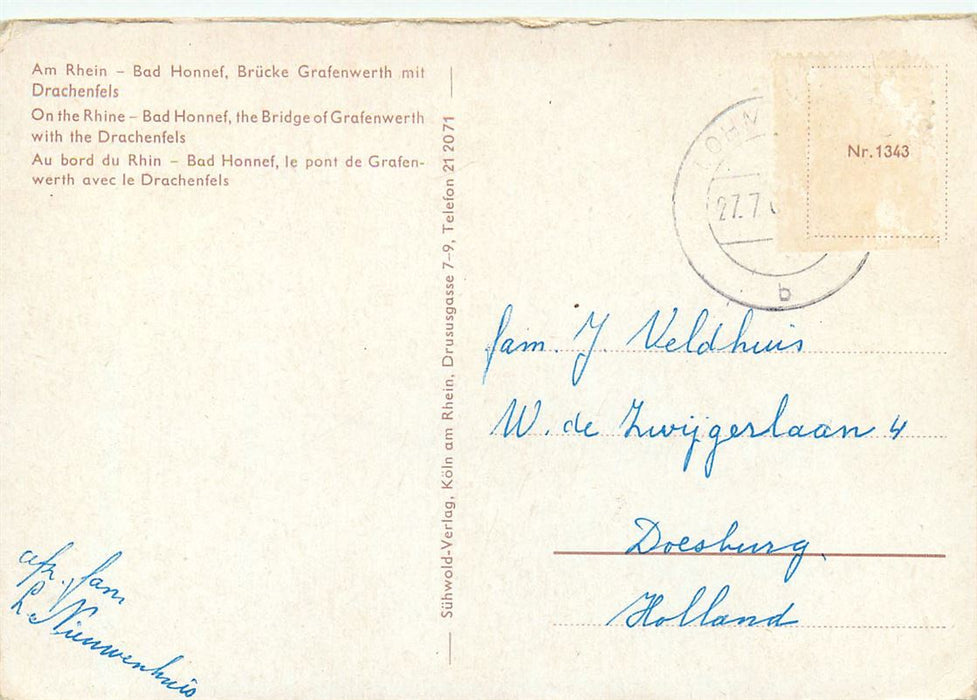 Am Rhein – Bad Honnef, Brücke Grafenwerth mit
Drachenfels
On the Rhine – Bad Honnef, the Bridge of Grafenwerth
with the Drachenfels
Au bord du Rhin – Bad Honnef, le pont de Grafen-
werth avec le Drachenfels
Sühwold-Verlag, Köln am Rhein, Drususgasse 7–9, Telefon 21 20 71
Nr. 1343
27.7
b
fam. J. Veldhuis
W. de Zwijgerlaan 4
Doesburg.
Holland
afz. fam
L. Nieuwenhuis